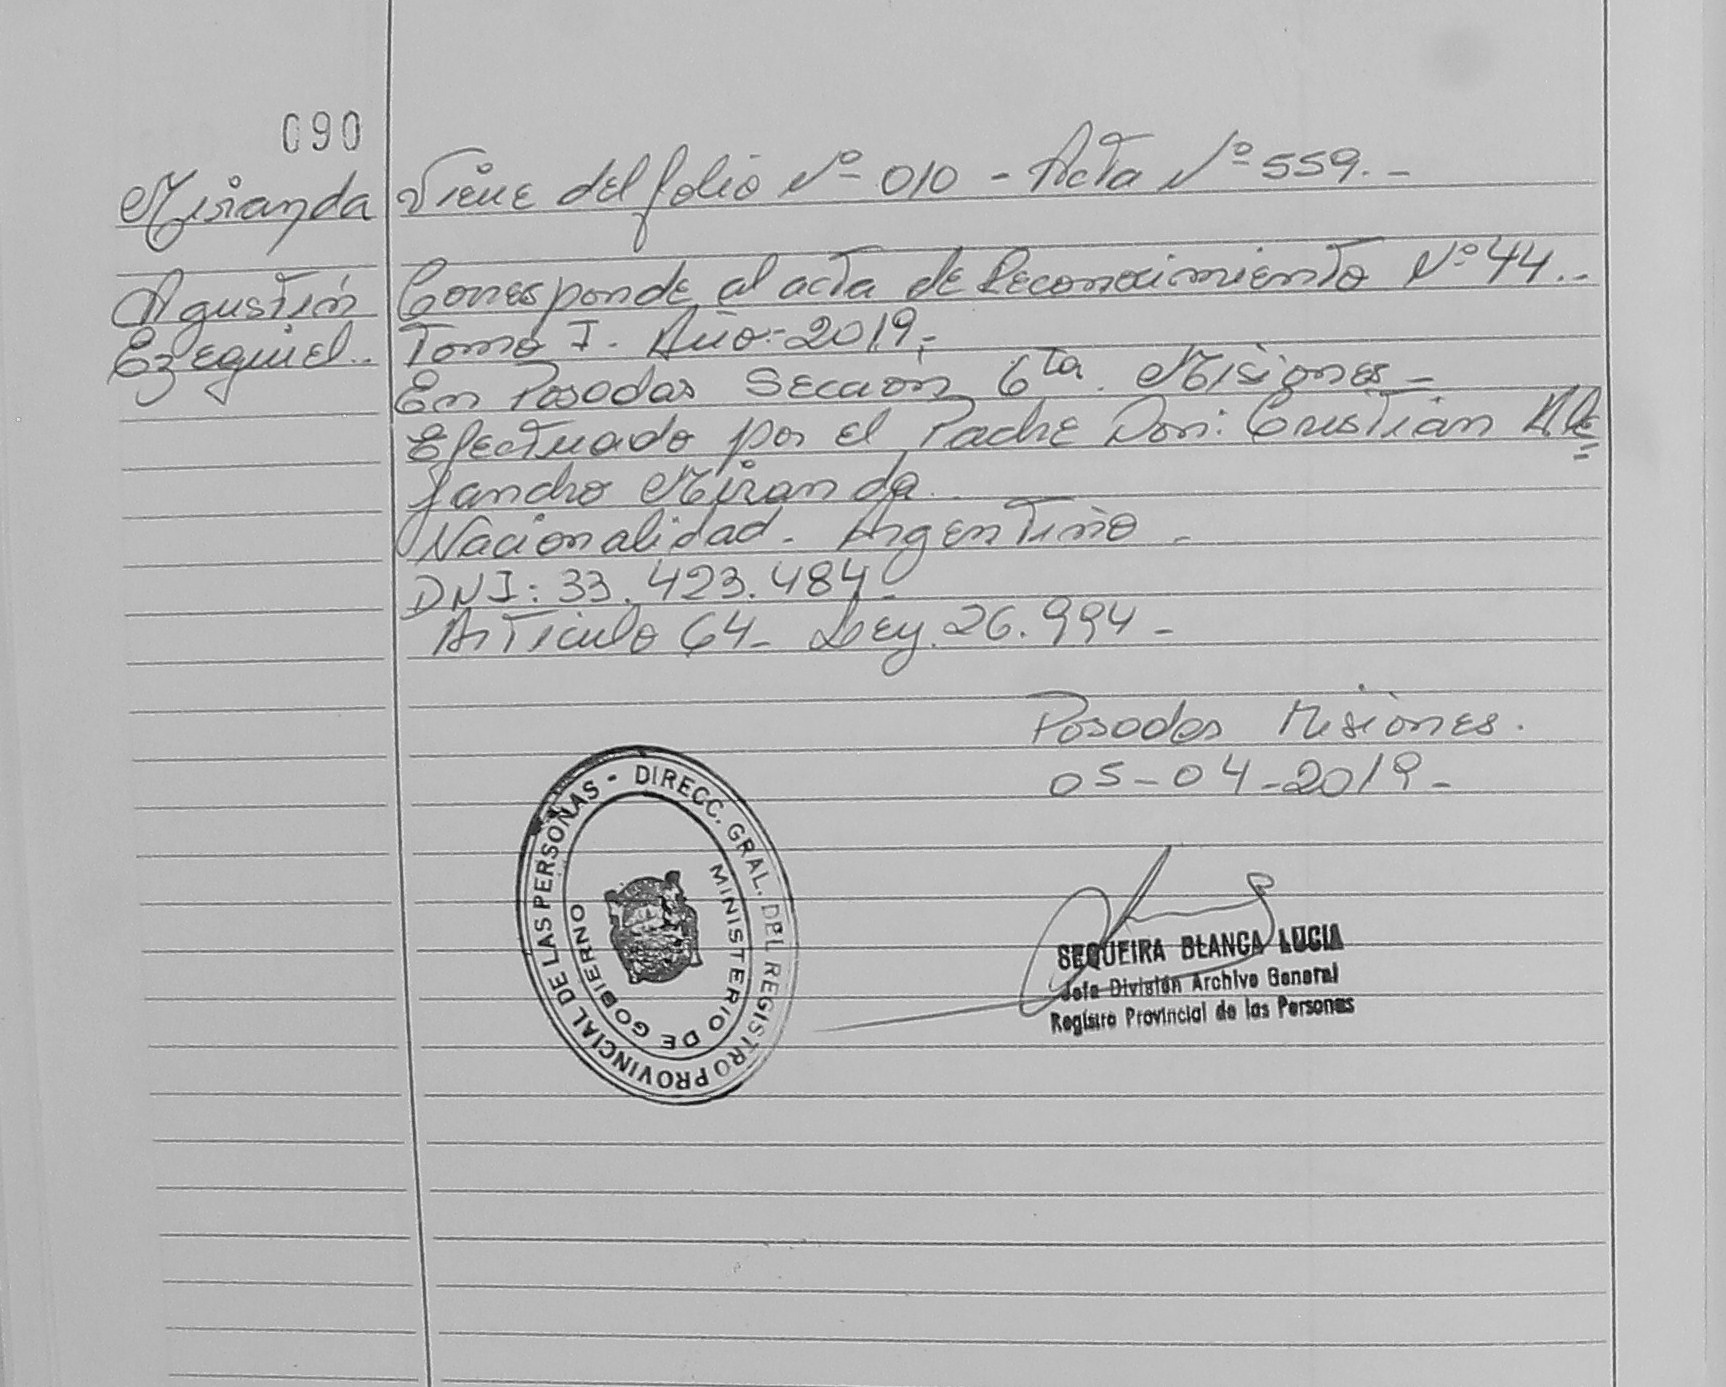 090
Miranda
Agustín
Ezequiel..
Viene del folio Nº 010 - Acta Nº 559.-
Corresponde al acta de Reconocimiento Nº 44..
Tomo I. Año: 2019.-
En Posadas Sección 6ta. Misiones -
Efectuado por el Padre Don: Cristian Ale=
jandro Miranda.
Nacionalidad. Argentino -
DNI: 33.423.484-
Artículo 64- Ley. 26.994 -
Posadas Misiones.
05-04-2019-
DIRECC. GRAL. DEL REGISTRO PROVINCIAL DE LAS PERSONAS -
MINISTERIO DE GOBIERNO
SEQUEIRA BLANCA LUCIA
Jefe División Archivo General
Registro Provincial de las Personas